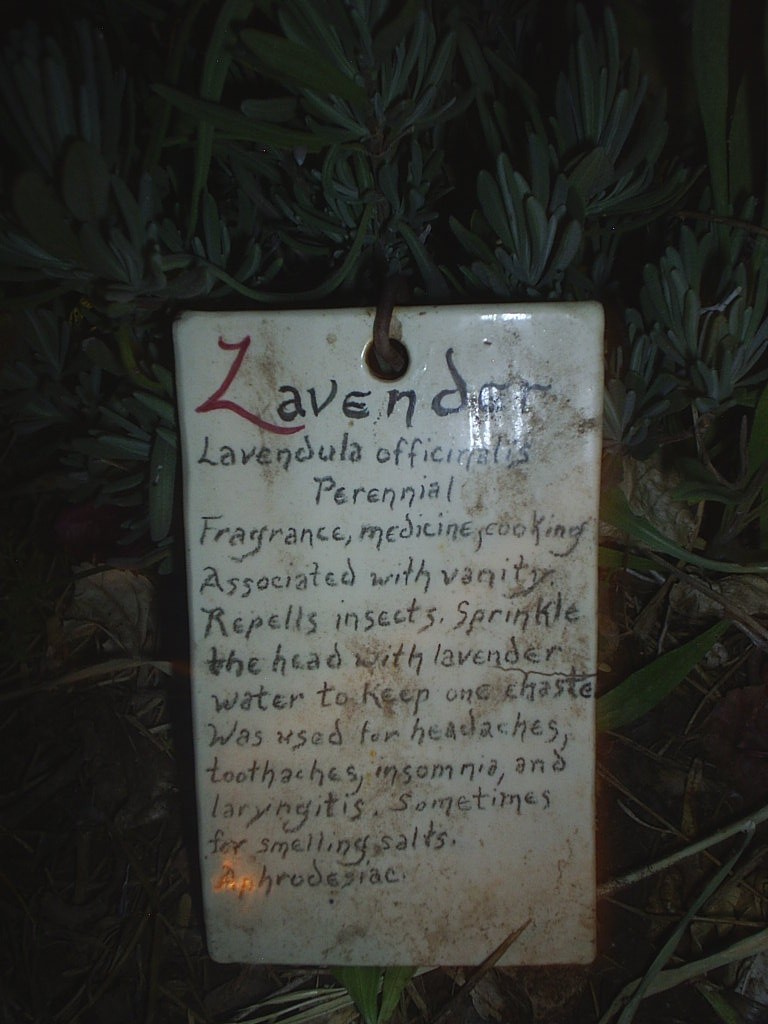 Lavender
Lavendula officinalis
Perennial
Fragrance, medicine, cooking
Associated with vanity.
Repells insects. Sprinkle
the head with lavender
water to keep one chaste
Was used for headaches,
toothaches, insomnia, and
laryngitis. Sometimes
for smelling salts.
Aphrodesiac.